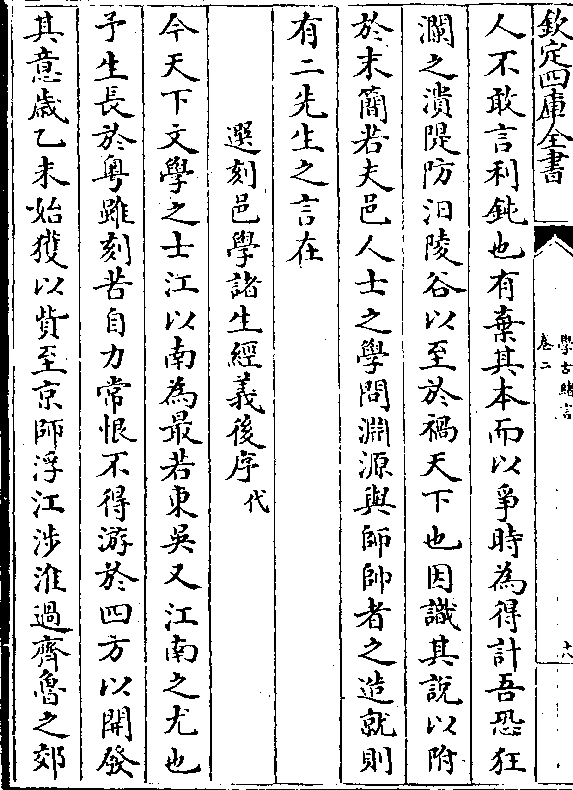 欽定四庫全書
學古緒言
卷二
十八
人不敢言利鈍也有棄其本而以爭時為得計吾恐狂
瀾之潰隄防汨陵谷以至於禍天下也因識其說以附
於末簡若夫邑人士之學問淵源與師帥者之造就則
有二先生之言在
選刻邑學諸生經義後序代
今天下文學之士江以南為最若東吳又江南之尤也
予生長於粵雖刻苦自力常恨不得游於四方以開發
其意歲乙未始獲以貲至京師浮江涉淮過齊魯之郊